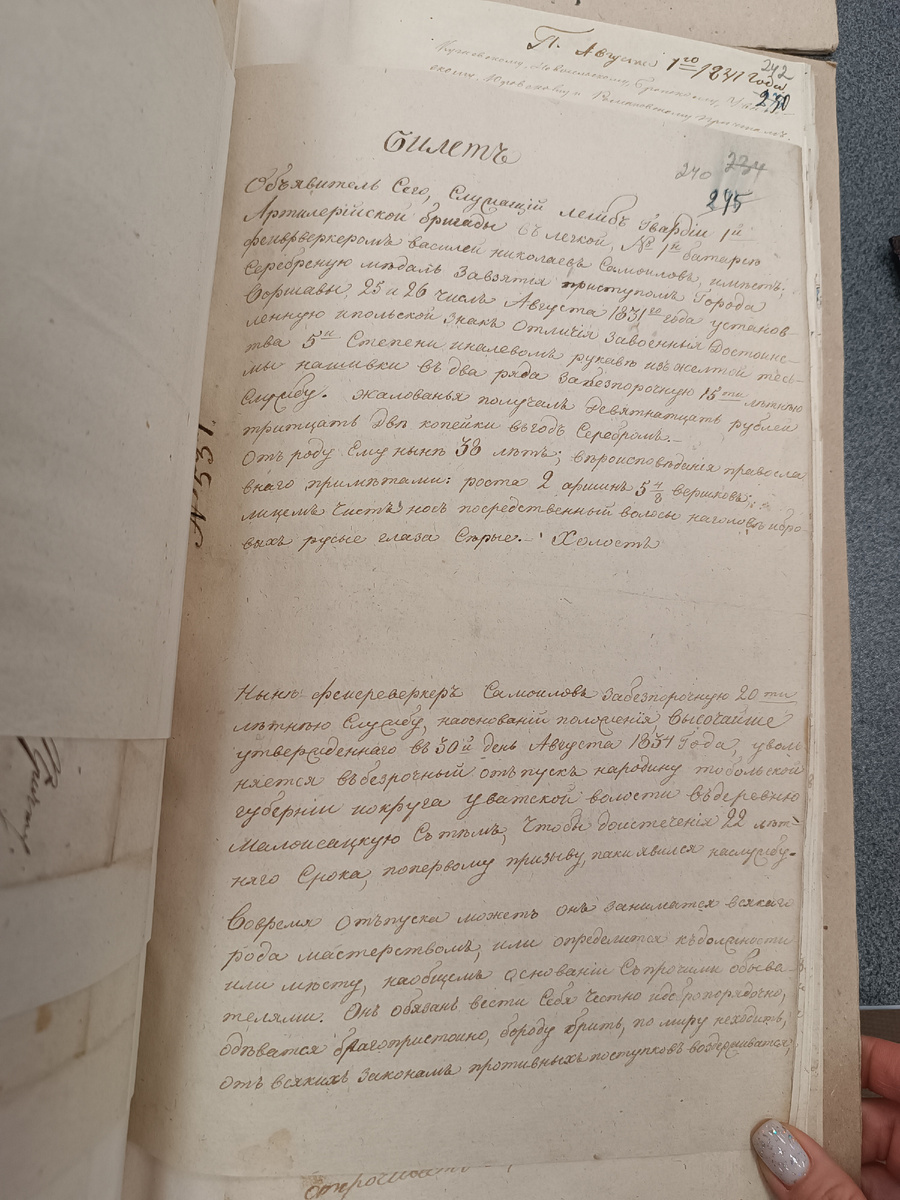 П. Августа 1го 1841 года
242
230
Билетъ
240 234
245
Объявитель Сего, Служащій лейбъ Гвардіи 1й
Артилерійской бригады въ легкой, № 1й батареѣ
фенврверкеромъ василей николаевъ Самоиловъ, имѣетъ;
Серебреную мѣдаль Завзятіе приступомъ Города
Воршавы 25 и 26 числъ Августа 1831го года установ
ленную ипольской знакъ отличія Завоенныя Достоинс-
тва 5й Степени иналевомъ рукавѣ изъ желтой тесь-
мы нашивки въ два ряда Забезпорочную 15ти лѣтнюю
Службу. жалованья получалъ Девятнатцать рублей
тритцать Двѣ копейки въгодъ Серебромъ.-
Отъ роду Ему нынѣ 38 лѣтъ; вѣроисповѣданія правосла
внаго примѣтами: роста 2 аршинъ 5 вершковъ;
лицемъ чистъ носъ посредственный волосы наголовѣ ибро-
выхъ русые глаза Сѣрые.- Холостъ
Нынѣ фенереверкеръ Самоиловъ Забезпорочную 20ти
лѣтнюю Службу, наоснованіи положенія Высочайше
утвержденнаго въ 30й день Августа 1834 Года, уволь
няется въбезрочный отъпускъ народину тобольской
губерніи иокруга уватской волости въдеревню
Малоисацкую Сътѣмъ, Чтобы доистеченія 22 лѣт-
няго Срока, попервому призыву, паки явился наслужбу.
Вовремя Отъпуска можетъ онъ заниматся всякаго
рода мастерствомъ, или определится къдолжности
или мѣсту, наобщемъ основаніи Съпрочими обыва-
телями: Онъ обязанъ вести Себя Честно идобропорядочно,
одѣватся благопристоино, бороду брить, по миру неходить,
отъ всякихъ Законамъ противныхъ поступковъ воздерживатся,